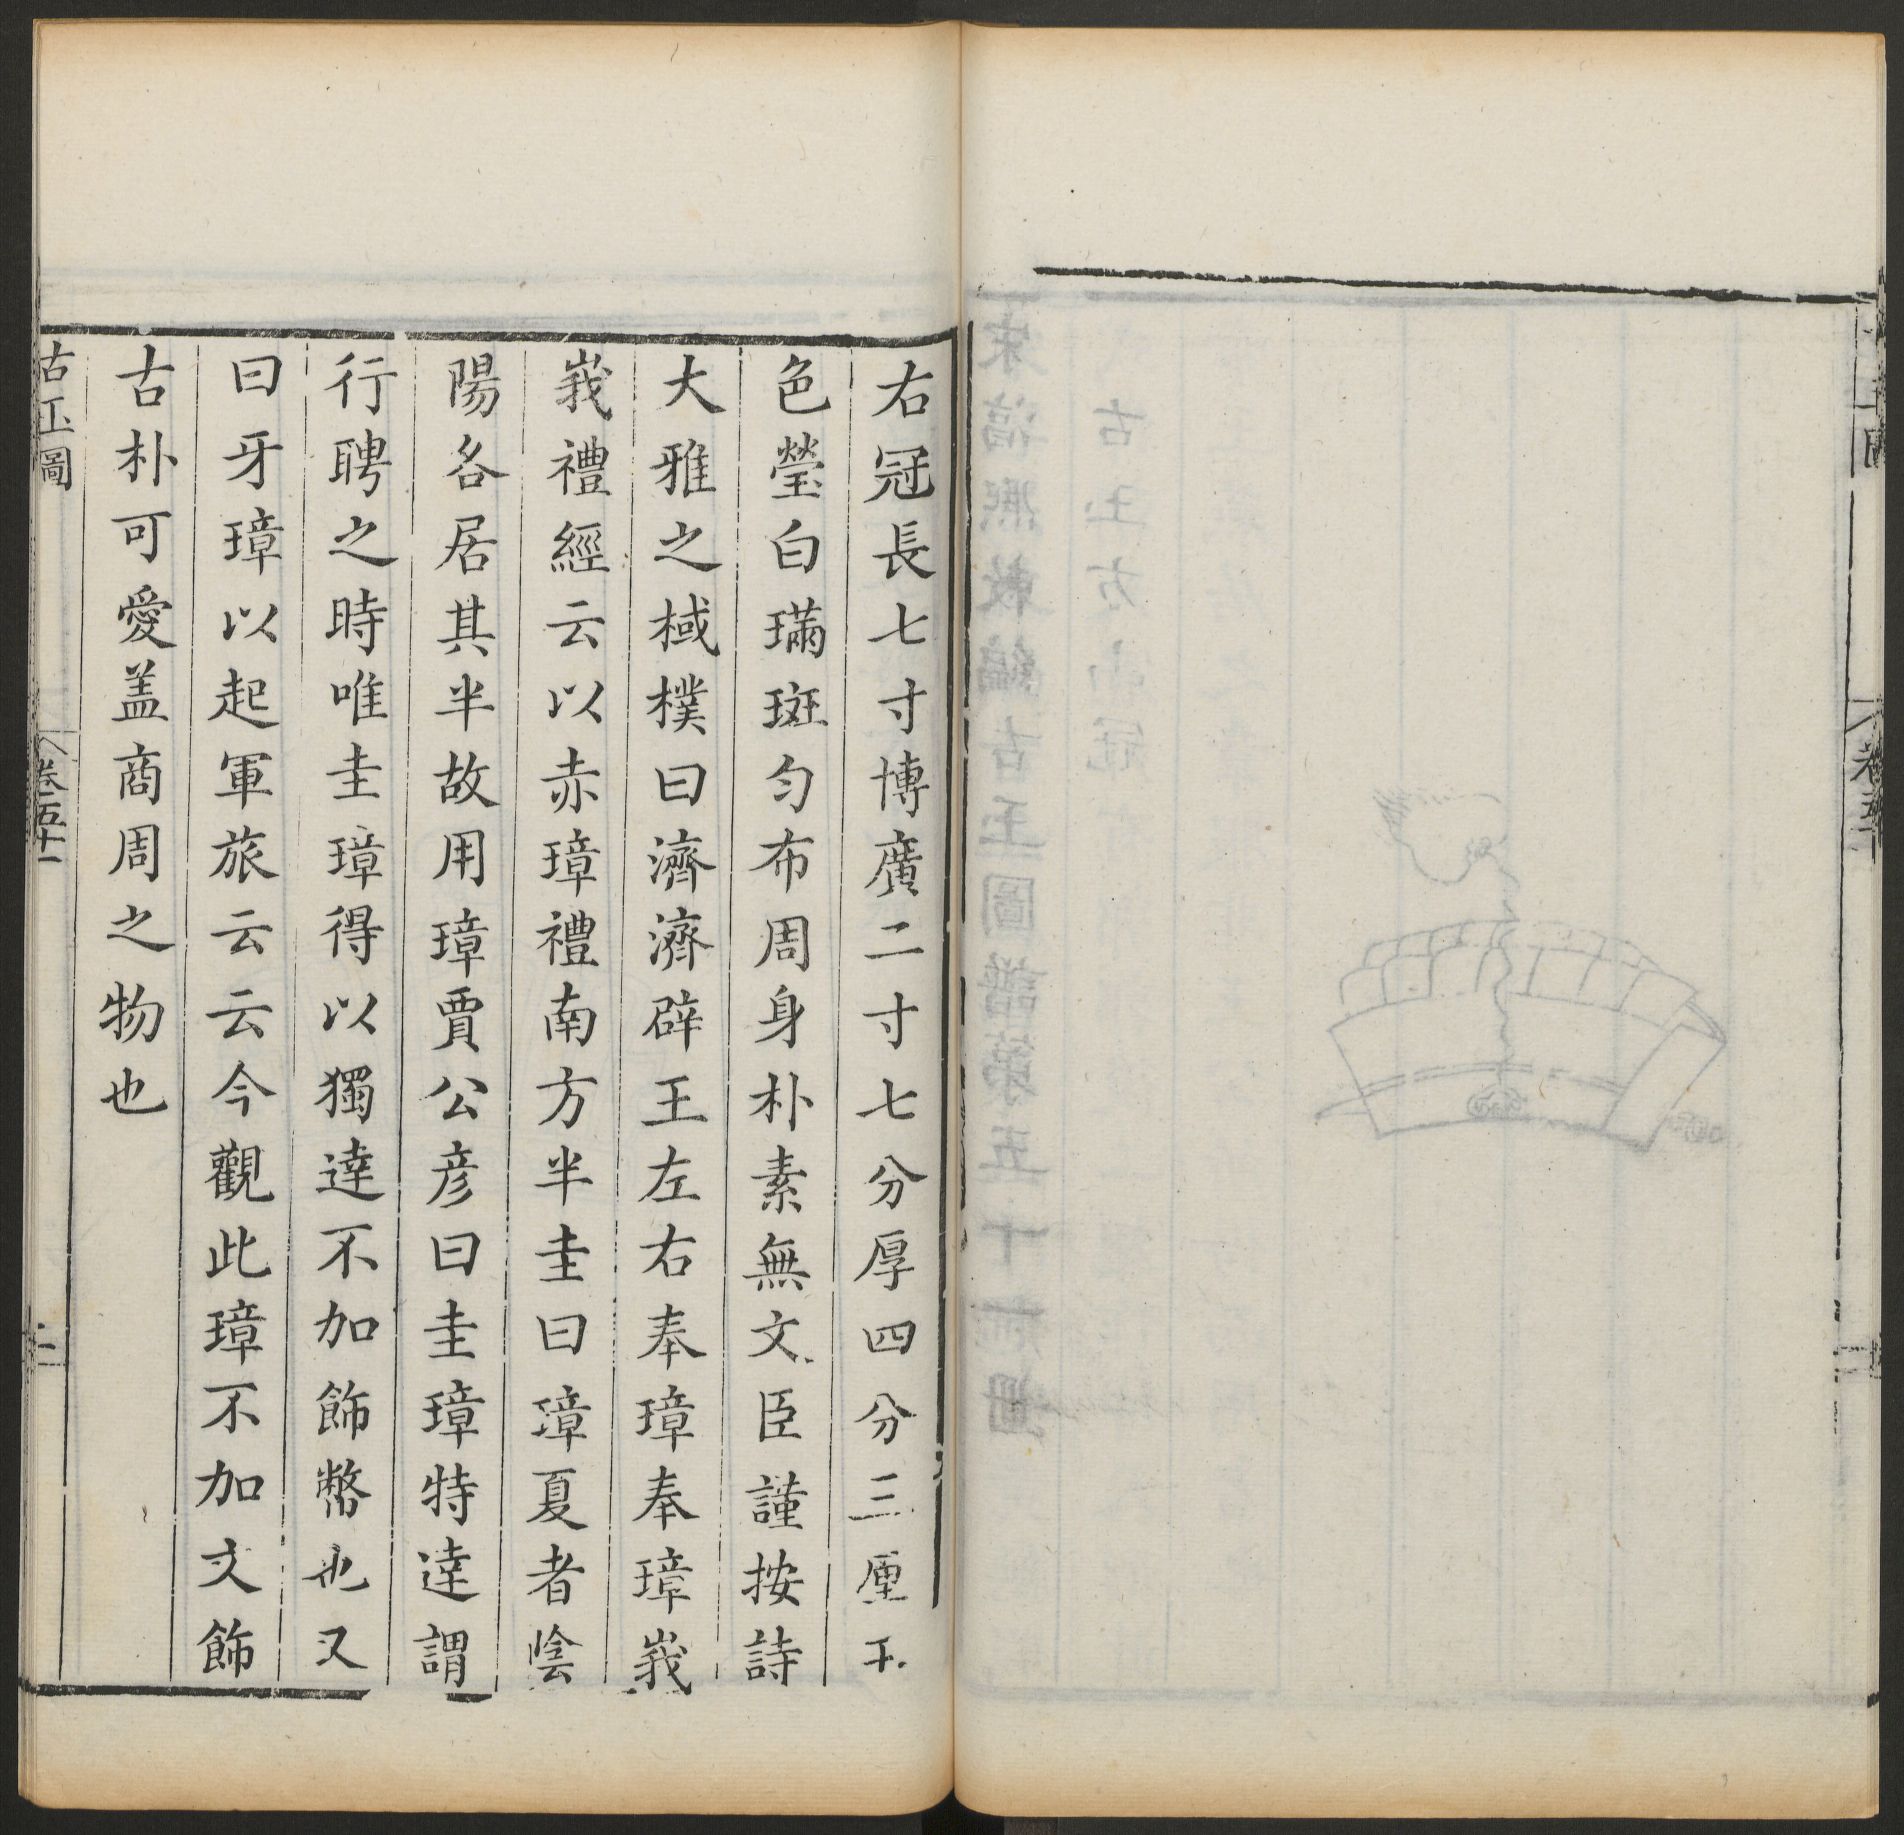 右冠長七寸博廣二寸七分厚四分三厘玉
色瑩白璊斑勻布周身朴素無文臣謹按詩
大雅之棫樸曰濟濟辟王左右奉璋奉璋峩
峩禮經云以赤璋禮南方半圭曰璋夏者陰
陽各居其半故用璋賈公彦曰圭璋特逹謂
行聘之時唯圭璋得以獨逹不加飾幣也又
曰牙璋以起軍旅云云今觀此璋不加文飾
古朴可愛盖商周之物也
古玉圖
卷五十一
二